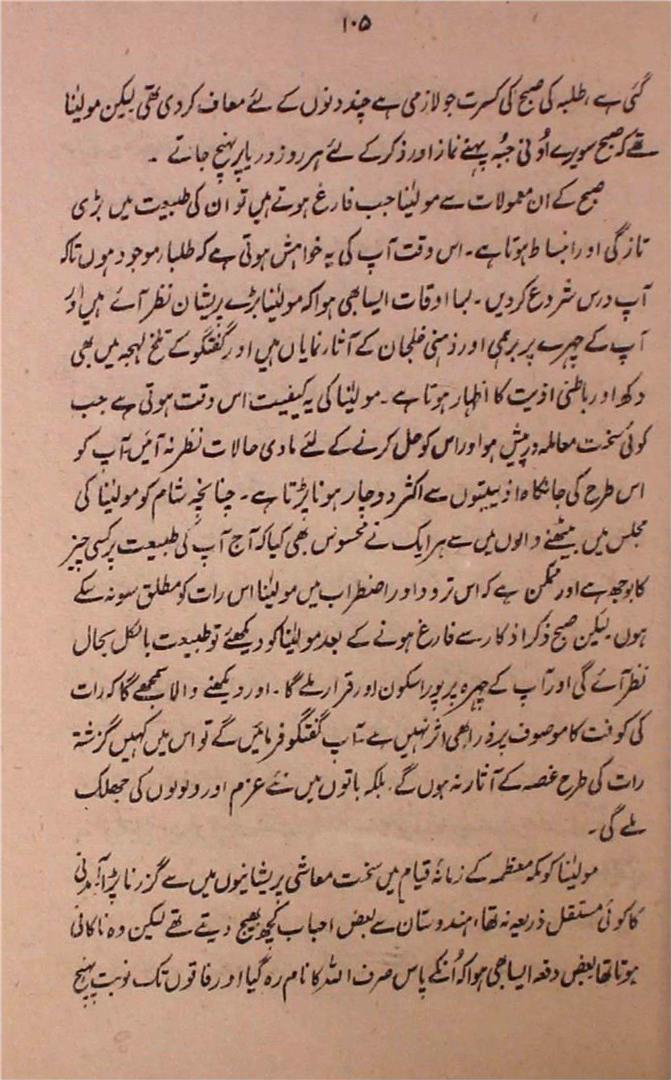 ۱۰۵
گئی ہے، طلبہ کی صبح کی کسرت جو لازمی ہے چند دنوں کے لئے معاف کر دی تھی لیکن مولینا
تھے کہ صبح سویرے اُونی جبُہ پہنے نماز اور ذکر کے لئے ہر روز دریا پر پہنچ جاتے ۔
صبح کے ان معمولات سے مولیٰنا جب فارغ ہوتے ہیں تو ان کی طبیعت میں بڑی
تازگی اور انبساط ہوتا ہے ۔ اس وقت آپ کی یہ خواہش ہوتی ہے کہ طلبا، موجود ہوں تاکہ
آپ درس شروع کردیں ۔ بسا اوقات ایسا بھی ہوا کہ مولیٰنا بڑے پریشان نظر آئے ہیں اور
آپ کے چہرے پر برہمی اور ذہنی خلجان کے آثار نمایاں ہیں اور گفتگو کے تلخ لہجہ میں بھی
دکھ اور باطنی اذیت کا اظہار ہوتا ہے ۔ مولیٰنا کی یہ کیفیت اس وقت ہوتی ہے جب
کوئی سخت معاملہ درپیش ہو اور اس کو حل کرنے کے لئے مادی حالات نظر نہ آئیں، آپ کو
اس طرح کی جانکاہ اذیتوں سے اکثر دوچار ہونا پڑتا ہے ۔ چنانچہ شام کو مولیٰنا کی
مجلس میں بیٹھنے والوں میں سے ہر ایک نے محسوس بھی کیا کہ آج آپ کی طبیعت پر کسی چیز
کا بوجھ ہے اور ممکن ہے کہ اس تردد اور اضطراب میں مولیٰنا اس رات کو مطلق سو نہ سکے
ہوں لیکن صبح ذکر اذکار سے فارغ ہونے کے بعد مولیٰنا کو دیکھئے تو طبیعت بالکل بحال
نظر آئے گی اور آپ کے چہرہ پر پورا سکون اور قرار ملے گا ۔ اور دیکھنے والا سمجھے گا کہ رات
کی کوفت کا موصوف پر ذرا بھی اثر نہیں ہے ۔ آپ گفتگو فرمائیں گے تو اس میں کہیں گزشتہ
رات کی طرح غصہ کے آثار نہ ہوں گے، بلکہ باتوں میں نئے عزم اور ولولوں کی جھلک
ملے گی ۔
مولیٰنا کو مکہ معظمہ کے زمانۂ قیام میں سخت معاشی پریشانیوں میں سے گزرنا پڑا، آمدنی
کا کوئی مستقل ذریعہ نہ تھا، ہندوستان سے بعض احباب کچھ بھیج دیتے تھے لیکن وہ ناکافی
ہوتا تھا بعض دفعہ ایسا بھی ہوا کہ اُنکے پاس صرف اللہ کا نام رہ گیا اور فاقوں تک نوبت پہنچ